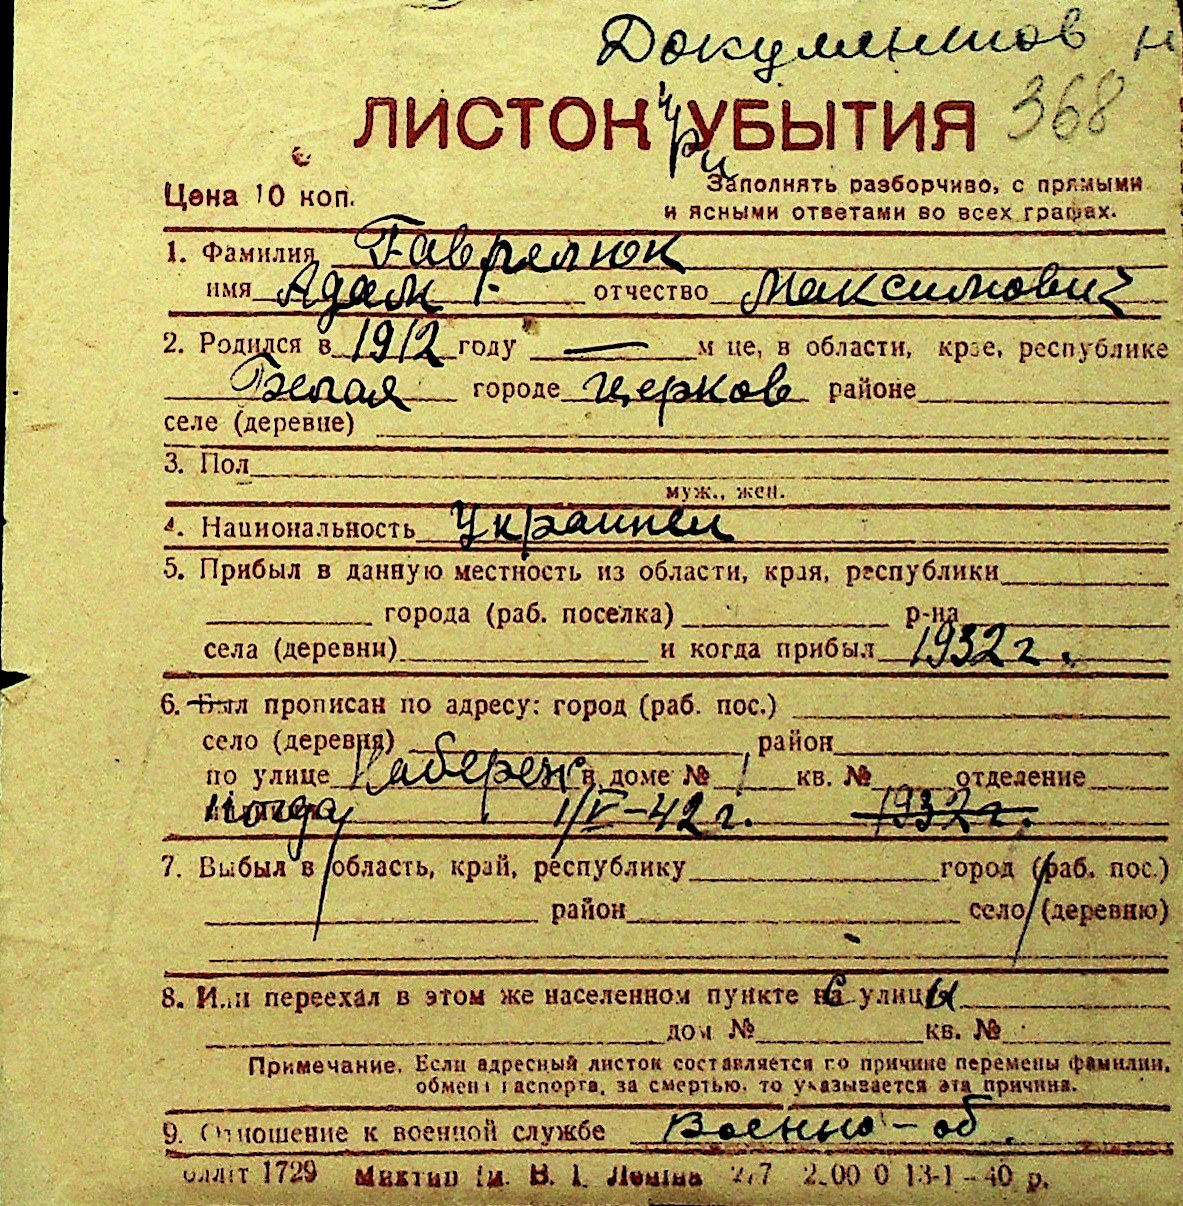 Документов н
368
ЛИСТОК УБЫТИЯ
при
Цена 10 коп.
Заполнять разборчиво, с прямыми
и ясными ответами во всех графах.
1. Фамилия Гаврелюк
имя Адам отчество Максимович
2. Родился в 1912 году — м-це, в области, крае, республике
Белая городе Церковь районе
селе (деревне)
3. Пол
муж., жен.
4. Национальность Украинец
5. Прибыл в данную местность из области, края, республики
города (раб. поселка) р-на
села (деревни) и когда прибыл 1932 г.
6. Был прописан по адресу: город (раб. пос.)
село (деревня) район
по улице Набереж в доме № 1 кв. № отделение
Когда 1/V-42 г. 1932 г.
7. Выбыл в область, край, республику город (раб. пос.)
район село (деревню)
8. Или переехал в этом же населенном пункте с улицы
дом № кв. №
Примечание. Если адресный листок составляется по причине перемены фамилии,
обмена паспорта, за смертью, то указывается эта причина.
9. Отношение к военной службе Военно-об.
1729 Ім. В. І. Леніна 2.00 0 13-1-40 р.